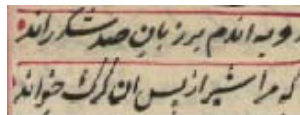 روبه اندم بر زبان صد شکر راند
که مرا شیر از پس ان کرک خواند